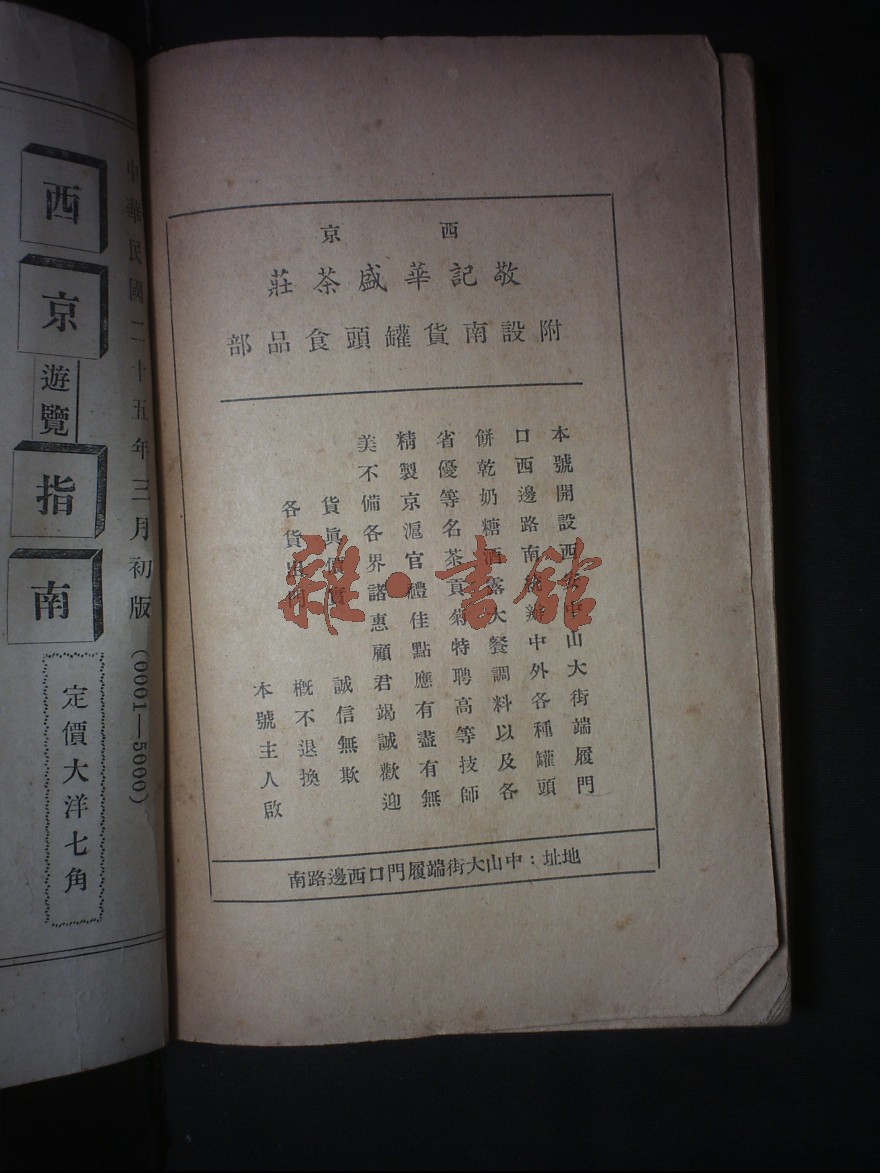 西京
敬記華盛茶莊
附設南貨罐頭食品部
本號開設西安中山大街端履門
口西邊路南辦中外各種罐頭
餅乾奶糖酒露大餐調料以及各
省優等名茶貢菊特聘高等技師
精製京滬官禮佳點應有盡有無
美不備各界諸惠顧君竭誠歡迎
貨眞價實 誠信無欺
各貨出門 概不退換
本號主人啟
地址：中山大街端履門口西邊路南
中華民國二十五年三月初版（0001—5000）
西京遊覽指南
定價大洋七角
雜·書館